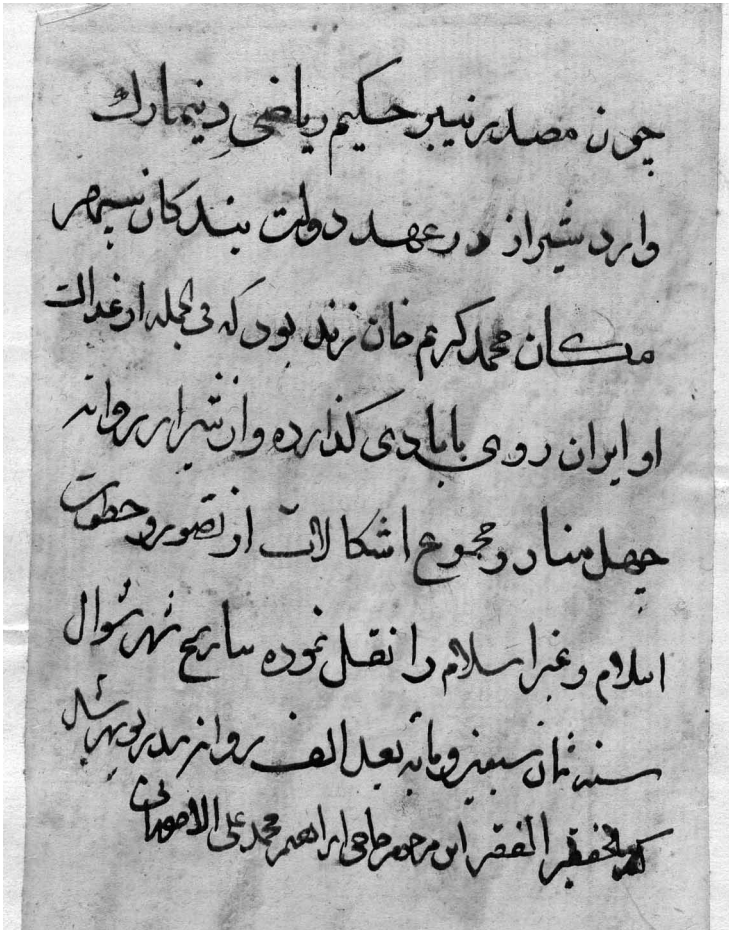 چون مصدر نیبر حکیم ریاضی دنیمارك
وارد شیراز در عهد دولت بندکان سپهر
مکان محمد کریم خان زند بود که فی الجمله از عدالت
او ایران روی بابادی کذارده و از شیراز روانه
چهل منار و مجموع اشکالات از تصویر و خطوت
اسلام و غیر اسلام را نقل نموده بتاریخ شهر شوال
سنه ثمان سبعین و مایه بعد الف روانه بندر بوشهر شد
الحقیر الفقیر ابن مرحوم حاجی ابراهیم محمد علی